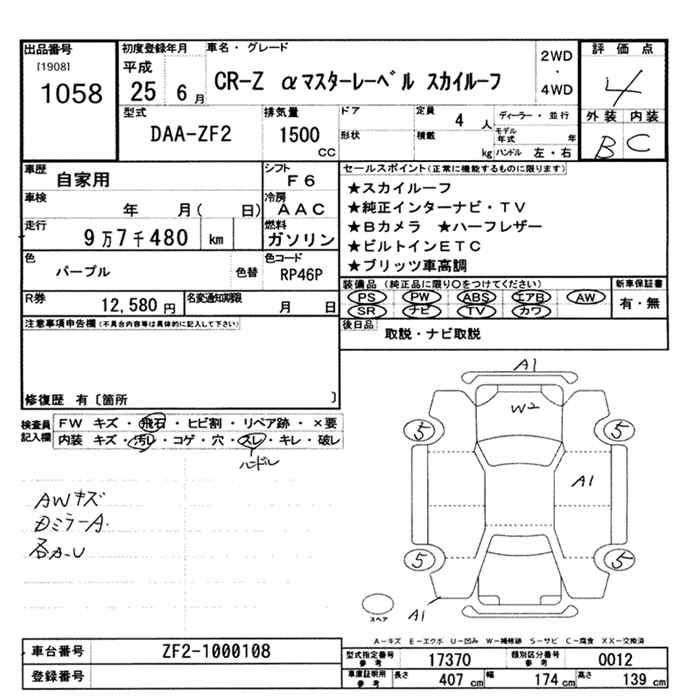 出品番号 初度登録年月 車名・グレード 評価点
[1908] 平成 2WD
1058 25 6月 CR-Z αマスターレーベル スカイルーフ ・ 4
4WD
外装 内装
B C
型式 排気量 ドア 定員 ディーラー・並行
DAA-ZF2 1500 CC 形状 積載 4人 kg モデル年式 年
ハンドル 左・右
車歴 自家用 シフト F6 セールスポイント(正常に機能するものに限ります)
車検 年 月( 日) 冷房 AAC ★スカイルーフ
★純正インターナビ・TV
走行 9万7千480 km 燃料 ガソリン ★Bカメラ ★ハーフレザー
★ビルトインETC
色 パープル 色替 色コード RP46P ★ブリッツ車高調
R券 12,580円 名変通知期限 月 日 装備品(純正品に限り○をつけてください) 新車保証書
PS PW ABS エアB AW 有・無
SR ナビ TV カワ
注意事項申告欄(不具合内容等は具体的に記入して下さい) 後日品 取説・ナビ取説
修復歴 有〔箇所 〕
検査員記入欄 FW キズ・飛石・ヒビ割・リペア跡・×要
内装 キズ・汚レ・コゲ・穴・スレ・キレ・破レ
ハンドル
AWキズ
DミラーA.
各A.U
A1
W2
5 5
A1
5 5
A1
スペア
A-キズ E-エクボ U-凹み W-補修跡 S-サビ C-腐食 XX-交換済
車台番号 ZF2-1000108 型式指定番号 参考 17370 類別区分番号 参考 0012
登録番号 車庫証明用 参考 長さ 407cm 幅 174cm 高さ 139cm